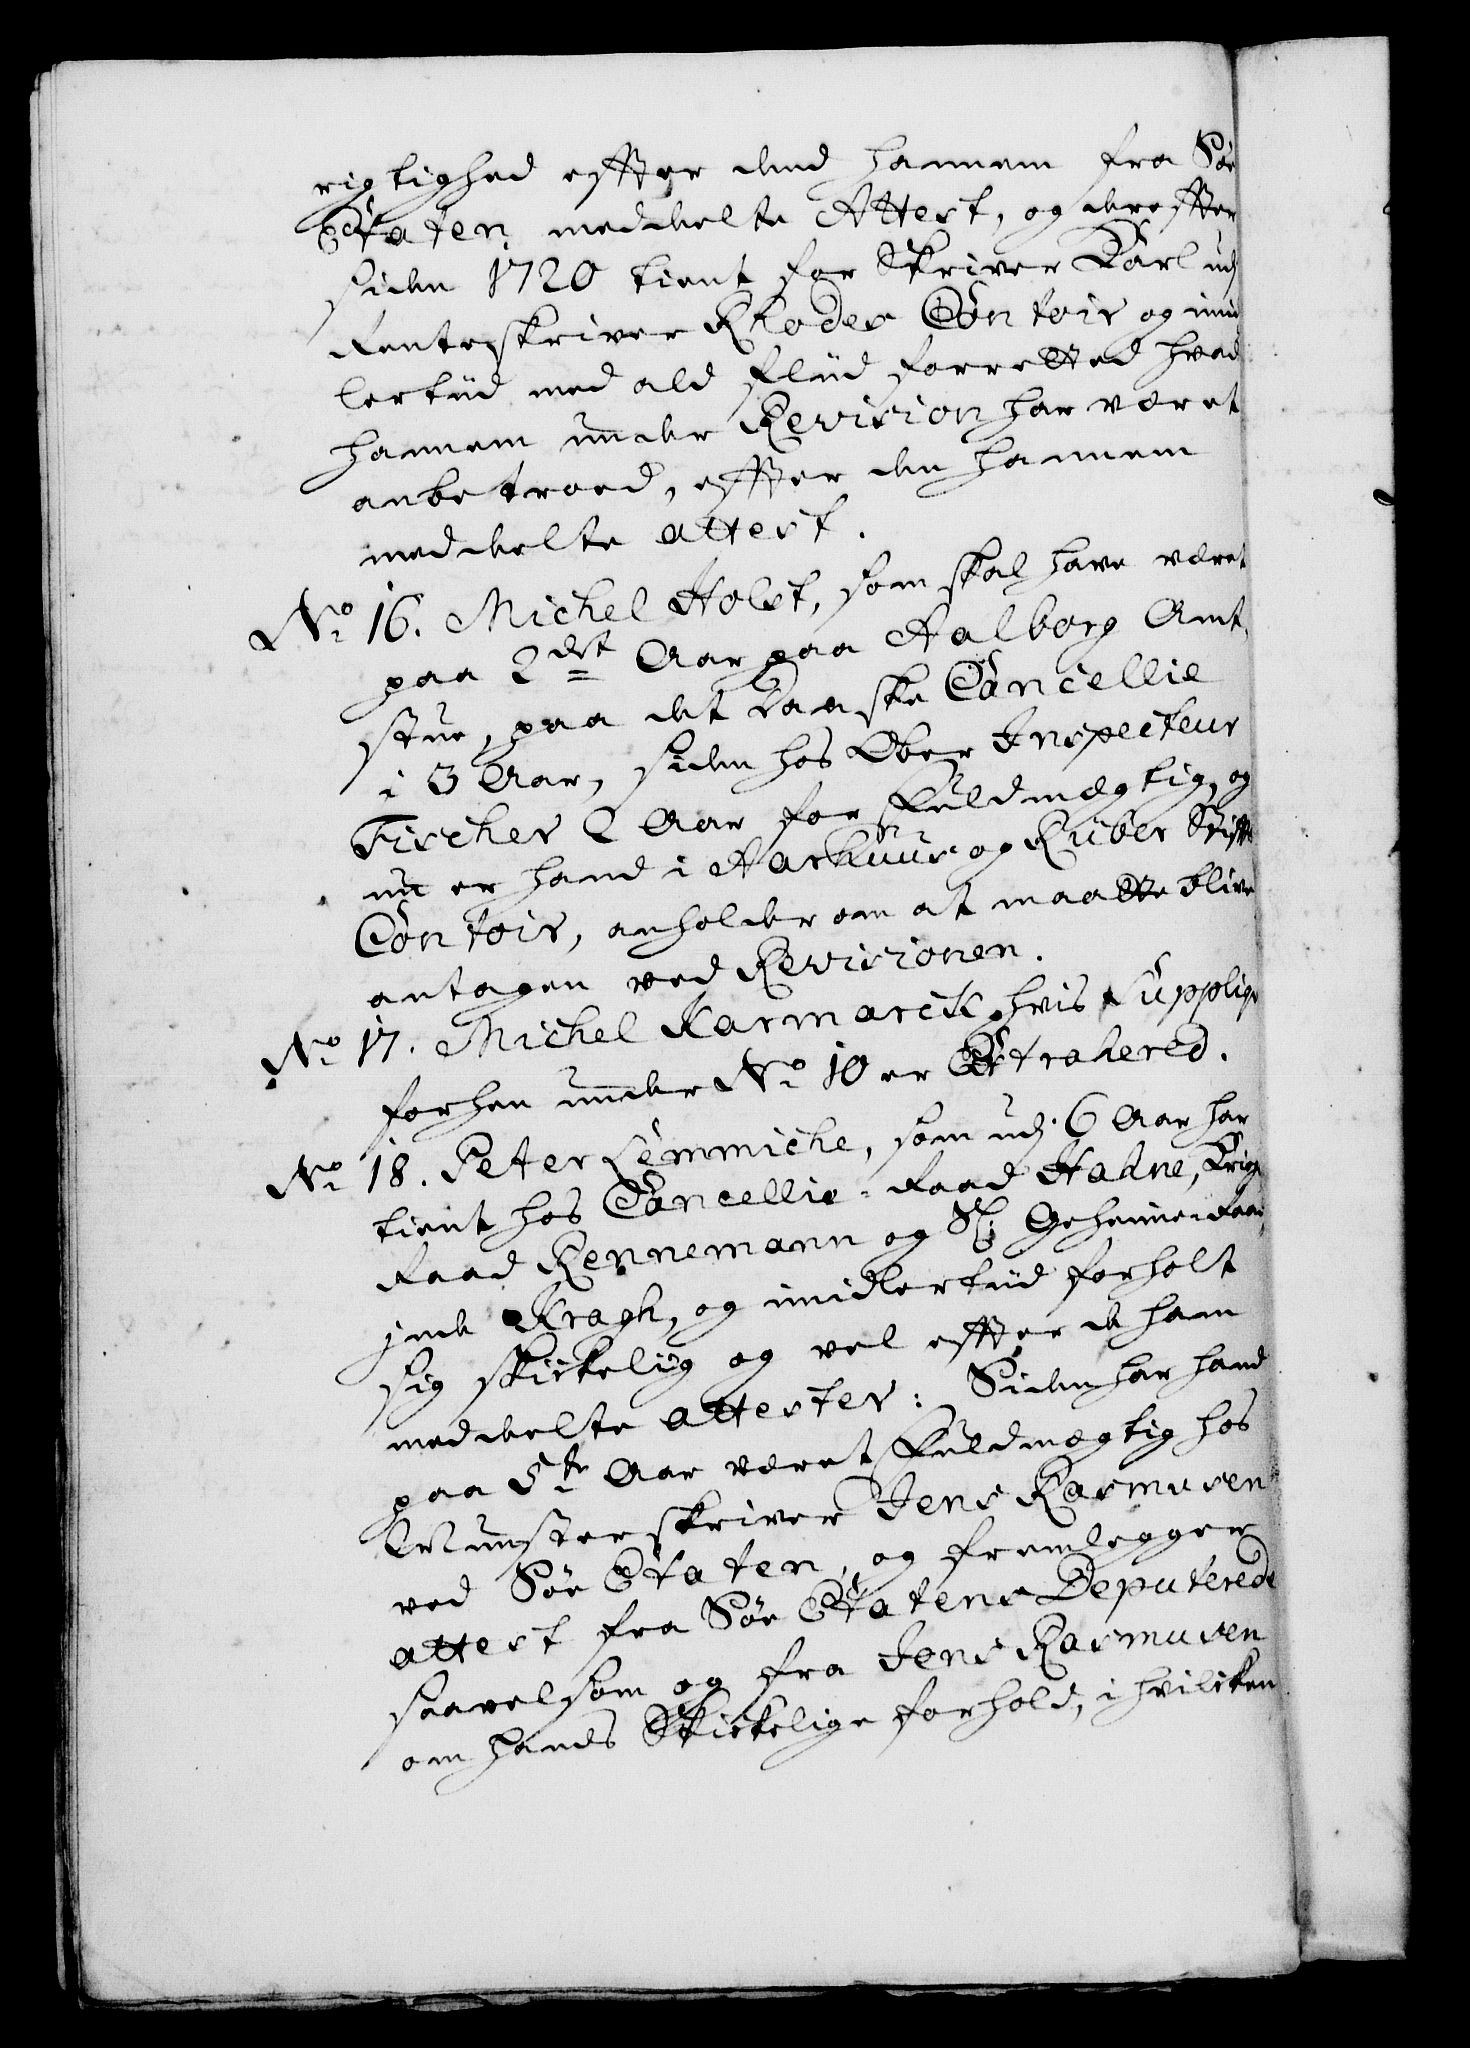 rigtighed effter dend hannem fra Søe
Etaten meddeelte Attest, og dereffter
siden 1720 tient for Skriver Karl udj
Renteskriver Klodes Contoir og imid
lertiid med ald fliid forretted hvad
hannem under Revision har været
anbetroed, effter den hannem
meddeelte attest.
No 16. Michel Holst, som skal have været
paa 2det Aar paa Aalborg Amt
stue, paa det Danske Cancellie
i 3 Aar, siden hos Ober Inspecteur
Fischer 2 Aar for Fuldmægtig, og
nu er hand i Aarhuus og Riiber Stiffts
Contoir, anholder om at maatte blive
antagen ved Revisionen.
No 17. Michel Karmarck hvis Supplique
forhen under No 10 er Extrahered.
No 18. Peter Lemmiche, som udj 6 Aar har
tient hos Cancellie-Raad Hahne, Krigs
Raad Rennemann og Sl: Geheime Raad
inde Kragh, og imidlertiid forholt
sig skickelig og vel effter de ham
meddeelte attester: Siden har hand
paa 5te Aar været Fuldmægtig hos
Munsterskriver Jens Rasmusen
ved Søe Etaten, og fremlegger
attest fra Søe Etatens Deputerede
saavelsom og fra Jens Rasmusen
om hands Skickelige forhold, i hvilcken